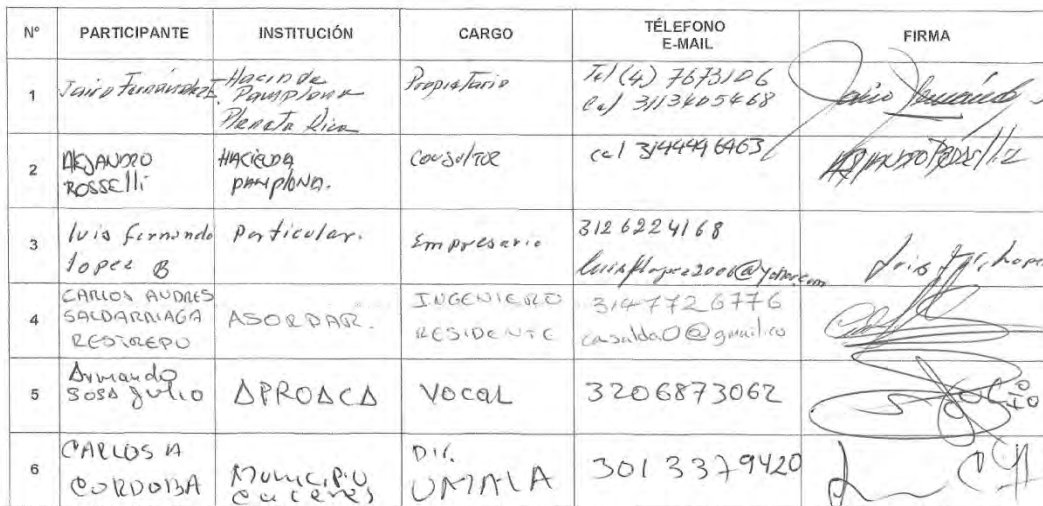 N° PARTICIPANTE INSTITUCIÓN CARGO TÉLEFONO E-MAIL FIRMA
1 Jairo Fernández E. Hacinda Pamplona Planeta Rica Propietario Tel (4) 7673106 Cel 3113405468 Jairo Fernández
2 ALEJANDRO ROSSELLI HACIENDA PAMPLONA. CONSULTOR cel 3144496463
3 luis fernando lopez B Particular. Empresario 3126224168 luisflopez2006@yahoo.com
4 CARLOS ANDRES SALDARRIAGA RESTREPO ASORPAR. INGENIERO RESIDENTE 3147726776 casalda0@gmail.co
5 Armando SOSA Julio APROACA VOCAL 3206873062
6 CARLOS A CORDOBA MUNICIPIO CACERES DIR. UMATA 3013379420